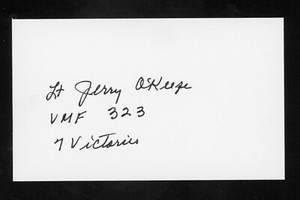 Lt Jerry O'Keefe
VMF 323
7 Victories